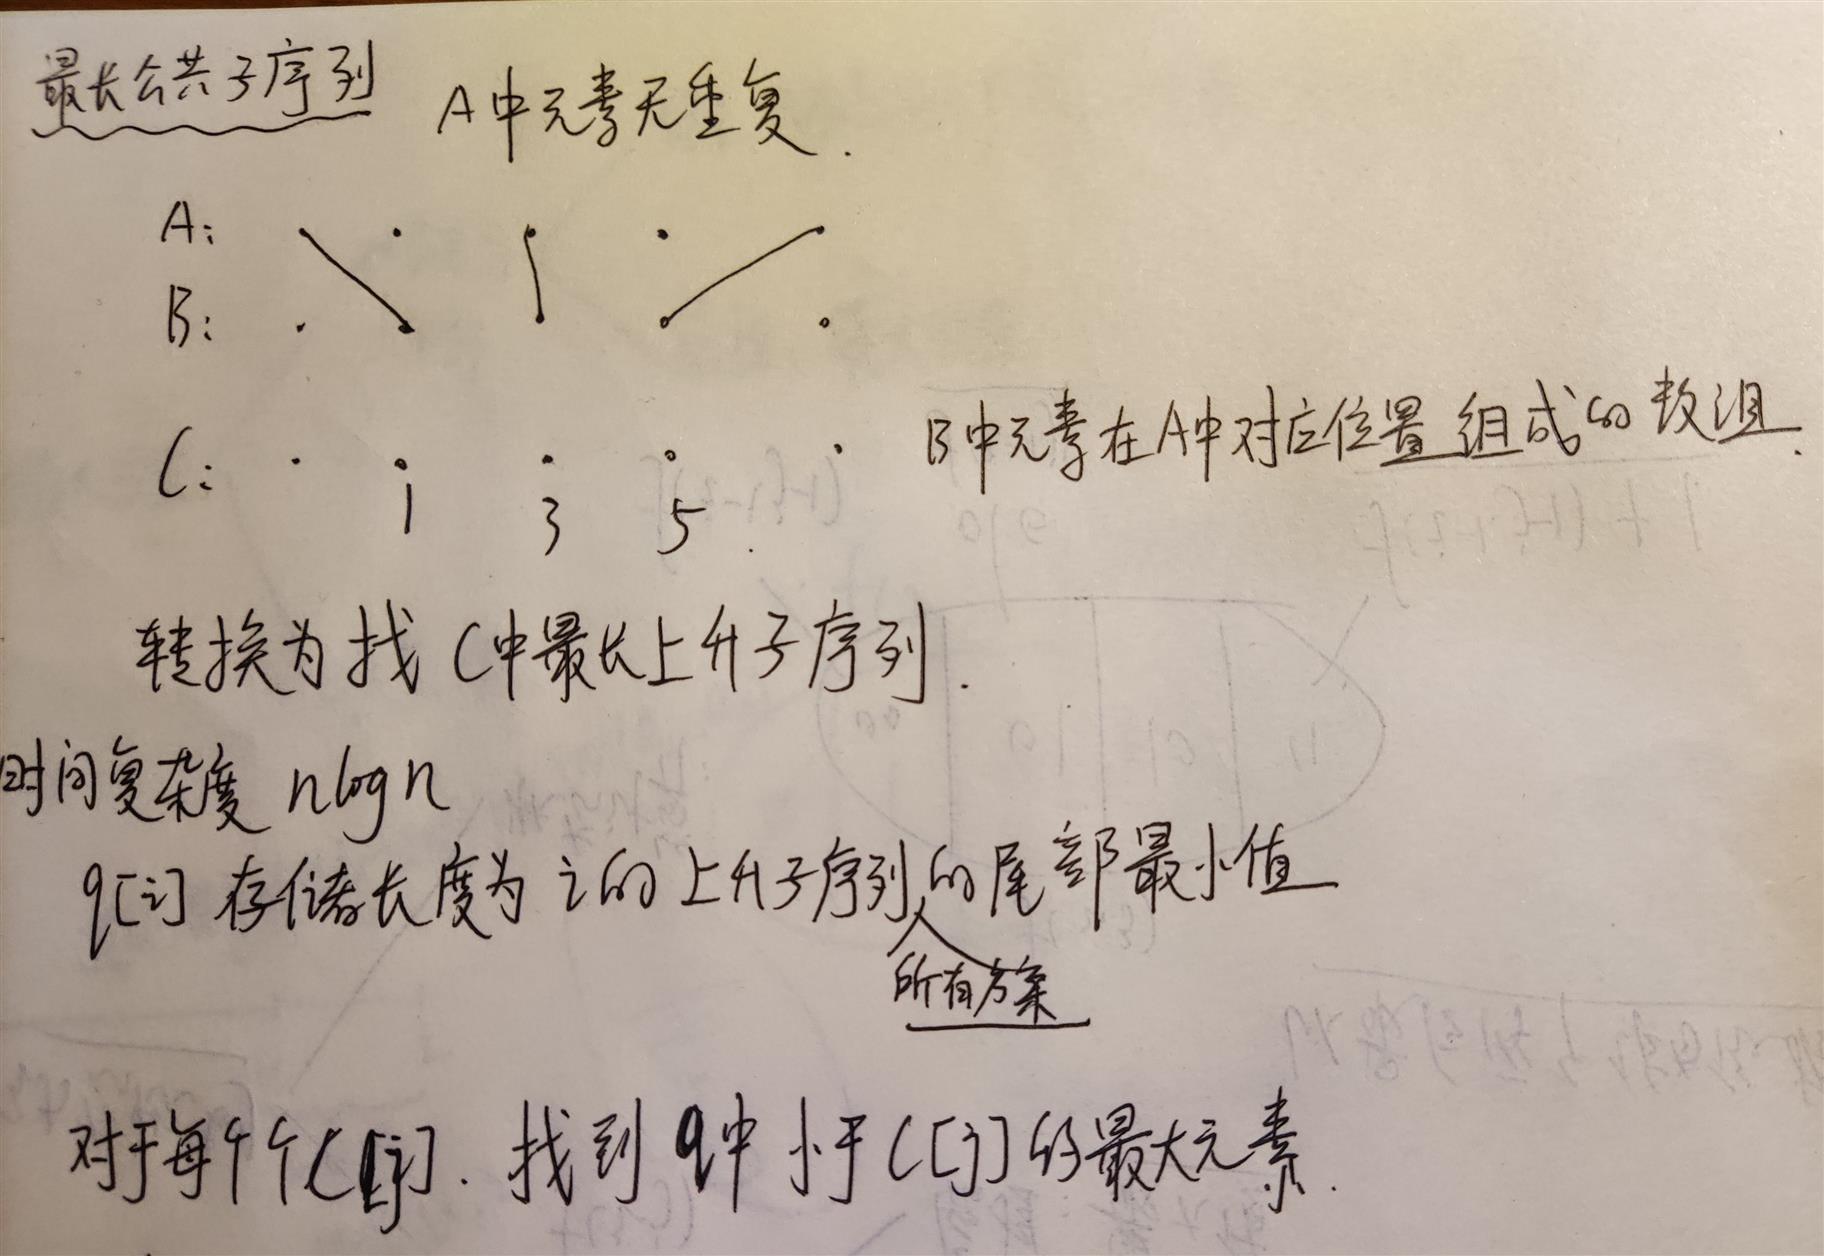 最长公共子序列 A中元素无重复.
A:
B:
C: B中元素在A中对应位置组成的数组.
1 3 5
转换为找C中最长上升子序列.
时间复杂度 nlogn
q[i]存储长度为i的上升子序列的尾部最小值
所有方案
对于每个个C[j]. 找到q中小于C[j]的最大元素.